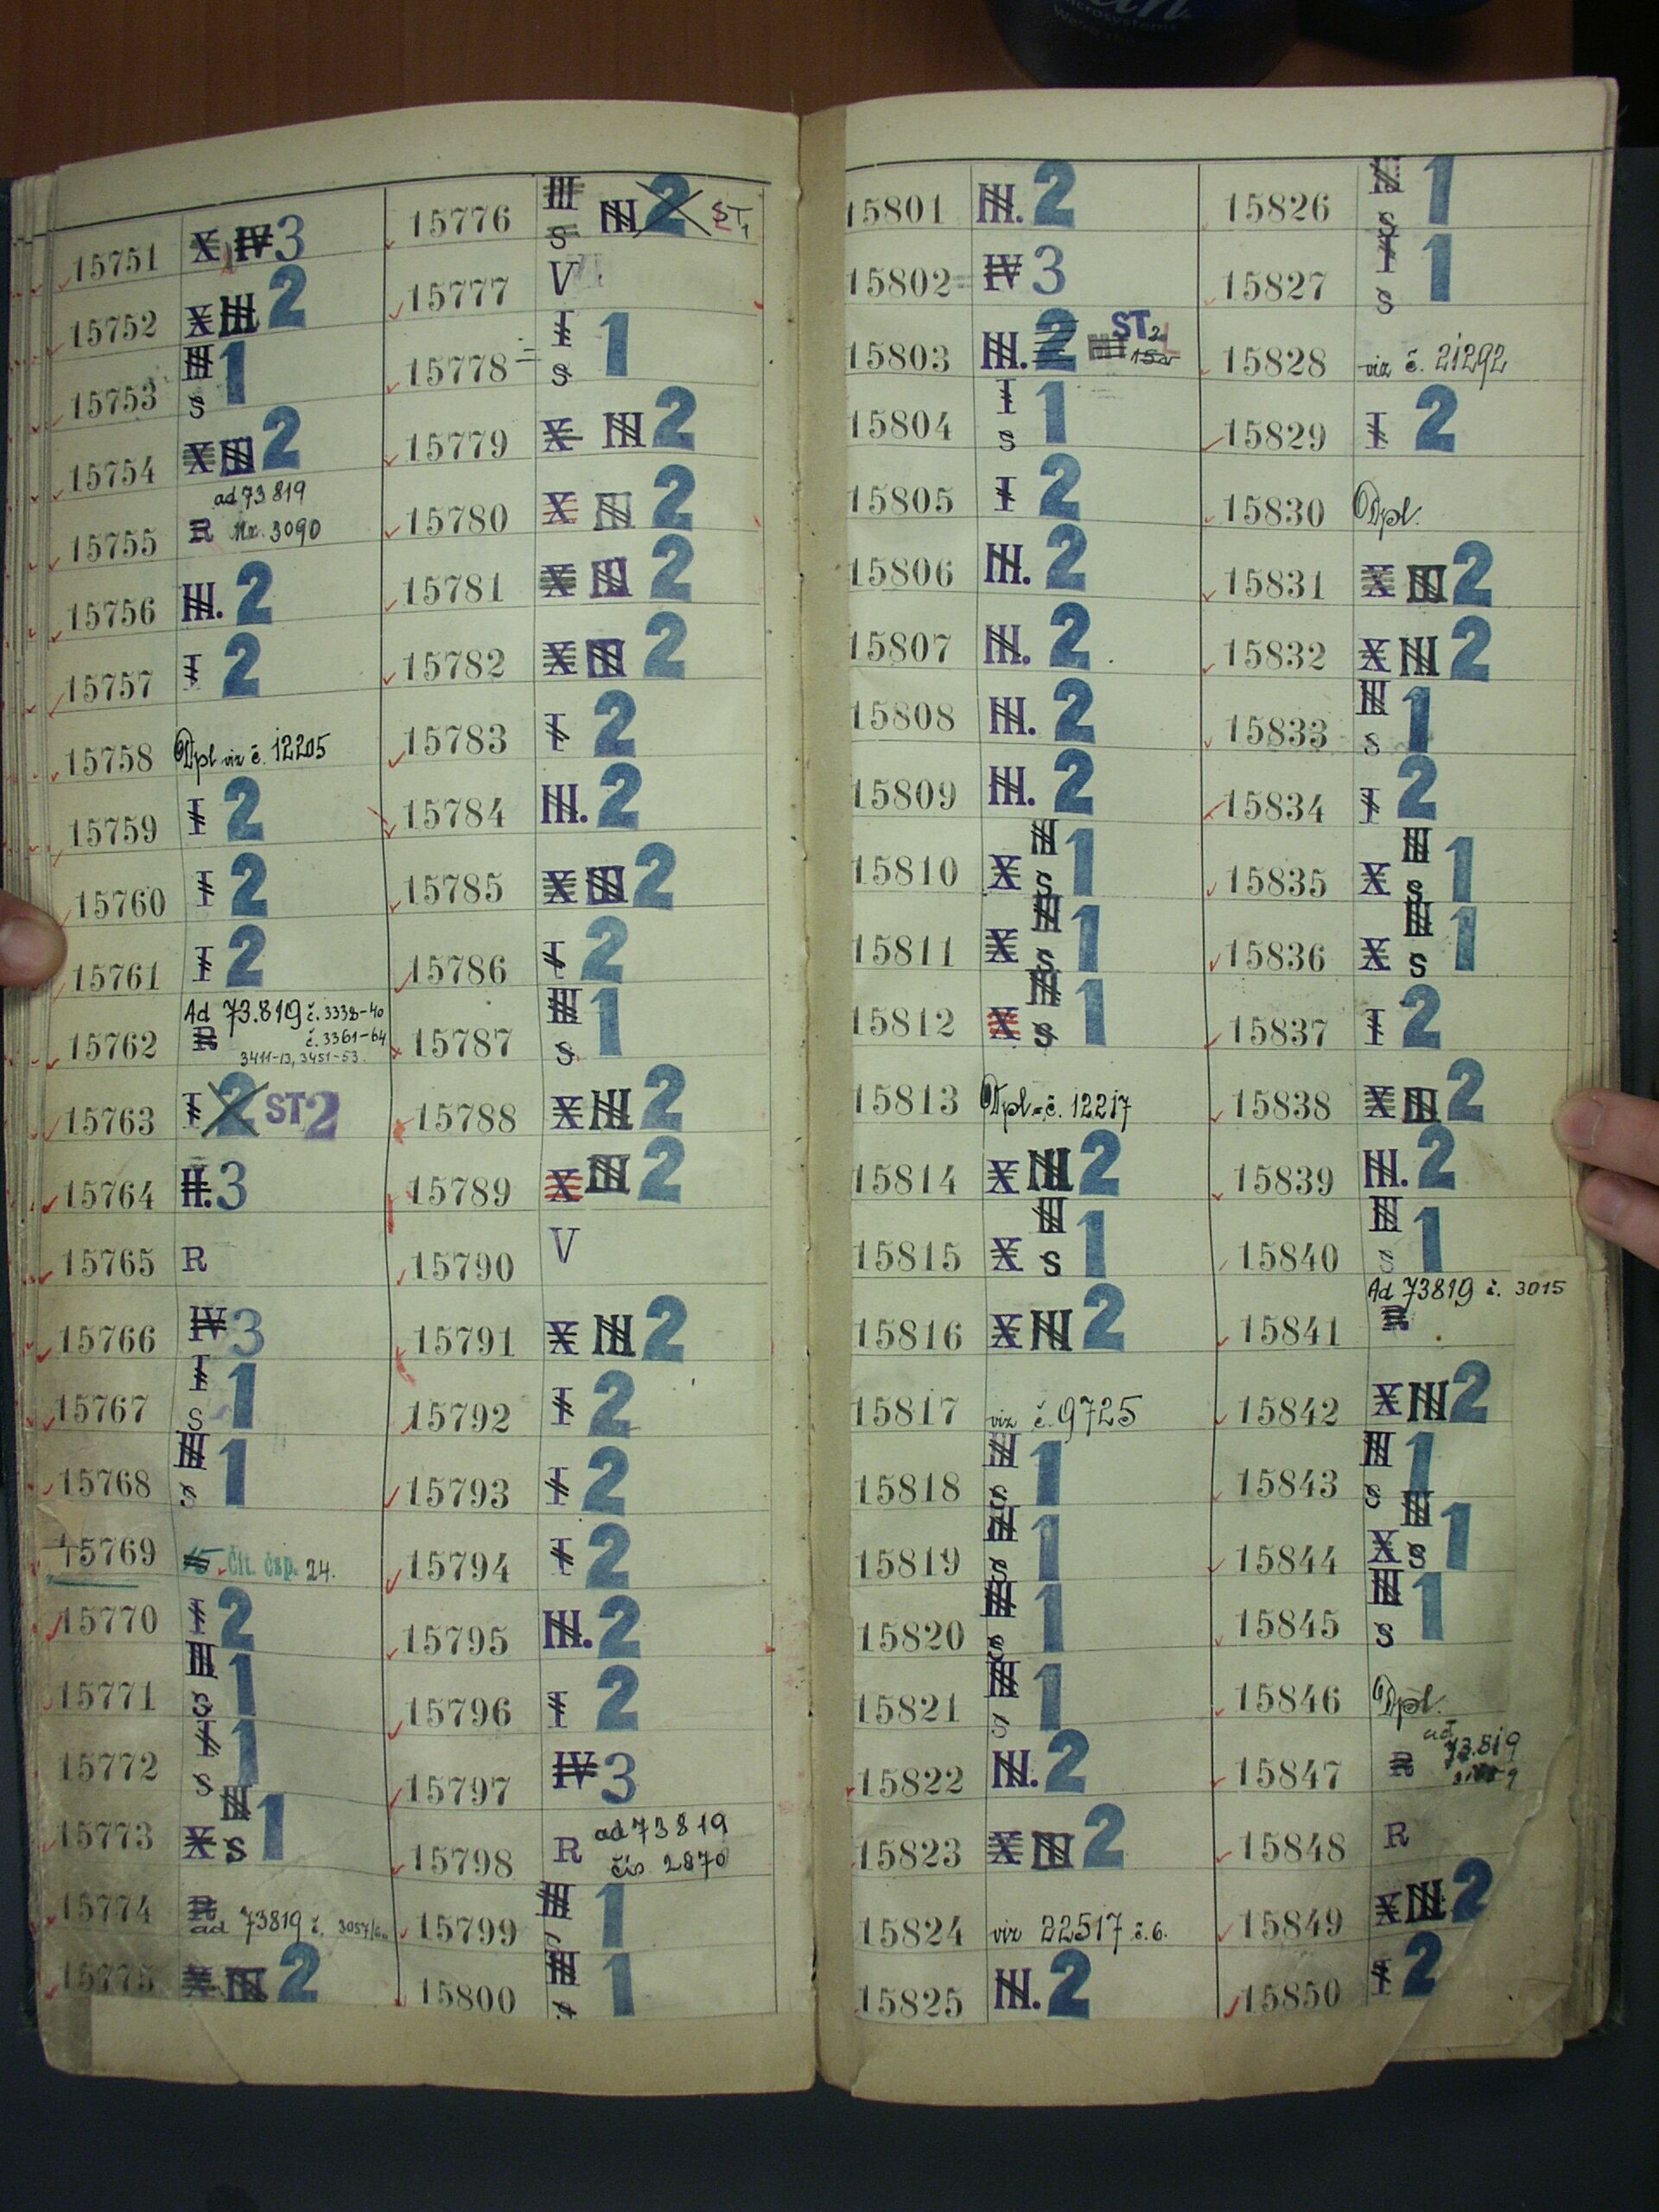 15751 X IV 3
15752 X III 2
15753 III S 1
15754 X III 2
15755 R ad 73819
Nr. 3090
15756 III. 2
15757 I 2
15758 Dpl viz č. 12205
15759 I 2
15760 I 2
15761 I 2
15762 R Ad 73.819 č. 3338-40
č. 3361-64
3411-13, 3451-53.
15763 I 2 ST 2
15764 II. 3
15765 R
15766 IV 3
15767 I S 1
15768 III S 1
15769 15 Čít. čsp. 24.
15770 I 2
15771 III S 1
15772 I S 1
15773 X III S 1
15774 R
ad 73819 č. 3057/
15775 X III 2
15776 III S III 2 ST 1
15777 V
15778 I S 1
15779 X III 2
15780 X III 2
15781 X III 2
15782 X III 2
15783 I 2
15784 III. 2
15785 X III 2
15786 I 2
15787 III S 1
15788 X III 2
15789 X III 2
15790 V
15791 X III 2
15792 I 2
15793 I 2
15794 I 2
15795 III. 2
15796 I 2
15797 IV 3
15798 R ad 73819
čís 2870
15799 III S 1
15800 III S 1
15801 III. 2
15802 IV 3
15803 III. 2 III ST 2
15804 I S 1
15805 I 2
15806 III. 2
15807 III. 2
15808 III. 2
15809 III. 2
15810 X III S 1
15811 X III S 1
15812 X III S 1
15813 Dpl = č. 12217
15814 X III 2
15815 X III S 1
15816 X III 2
15817 viz č. 9725
15818 III S 1
15819 III S 1
15820 III S 1
15821 III S 1
15822 III. 2
15823 X III 2
15824 viz 22517 č. 6.
15825 III. 2
15826 III S 1
15827 I S 1
15828 viz č. 21292
15829 I 2
15830 Dpl.
15831 X III 2
15832 X III 2
15833 III S 1
15834 I 2
15835 X III S 1
15836 X III S 1
15837 I 2
15838 X III 2
15839 III. 2
15840 III S 1
15841 Ad 73819 č. 3015
R
15842 X III 2
15843 III S 1
15844 X III S 1
15845 III S 1
15846 Dpl.
15847 R ad
73.819
15848 R
15849 X III 2
15850 I 2